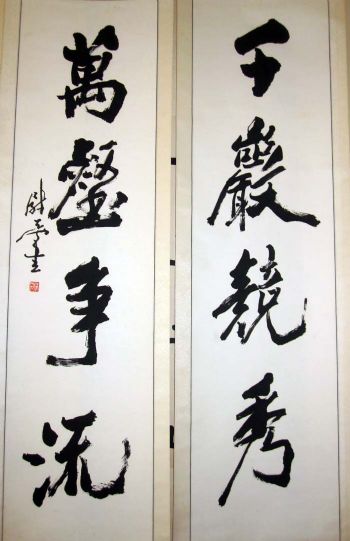 千巖競秀
萬壑爭流
尉天